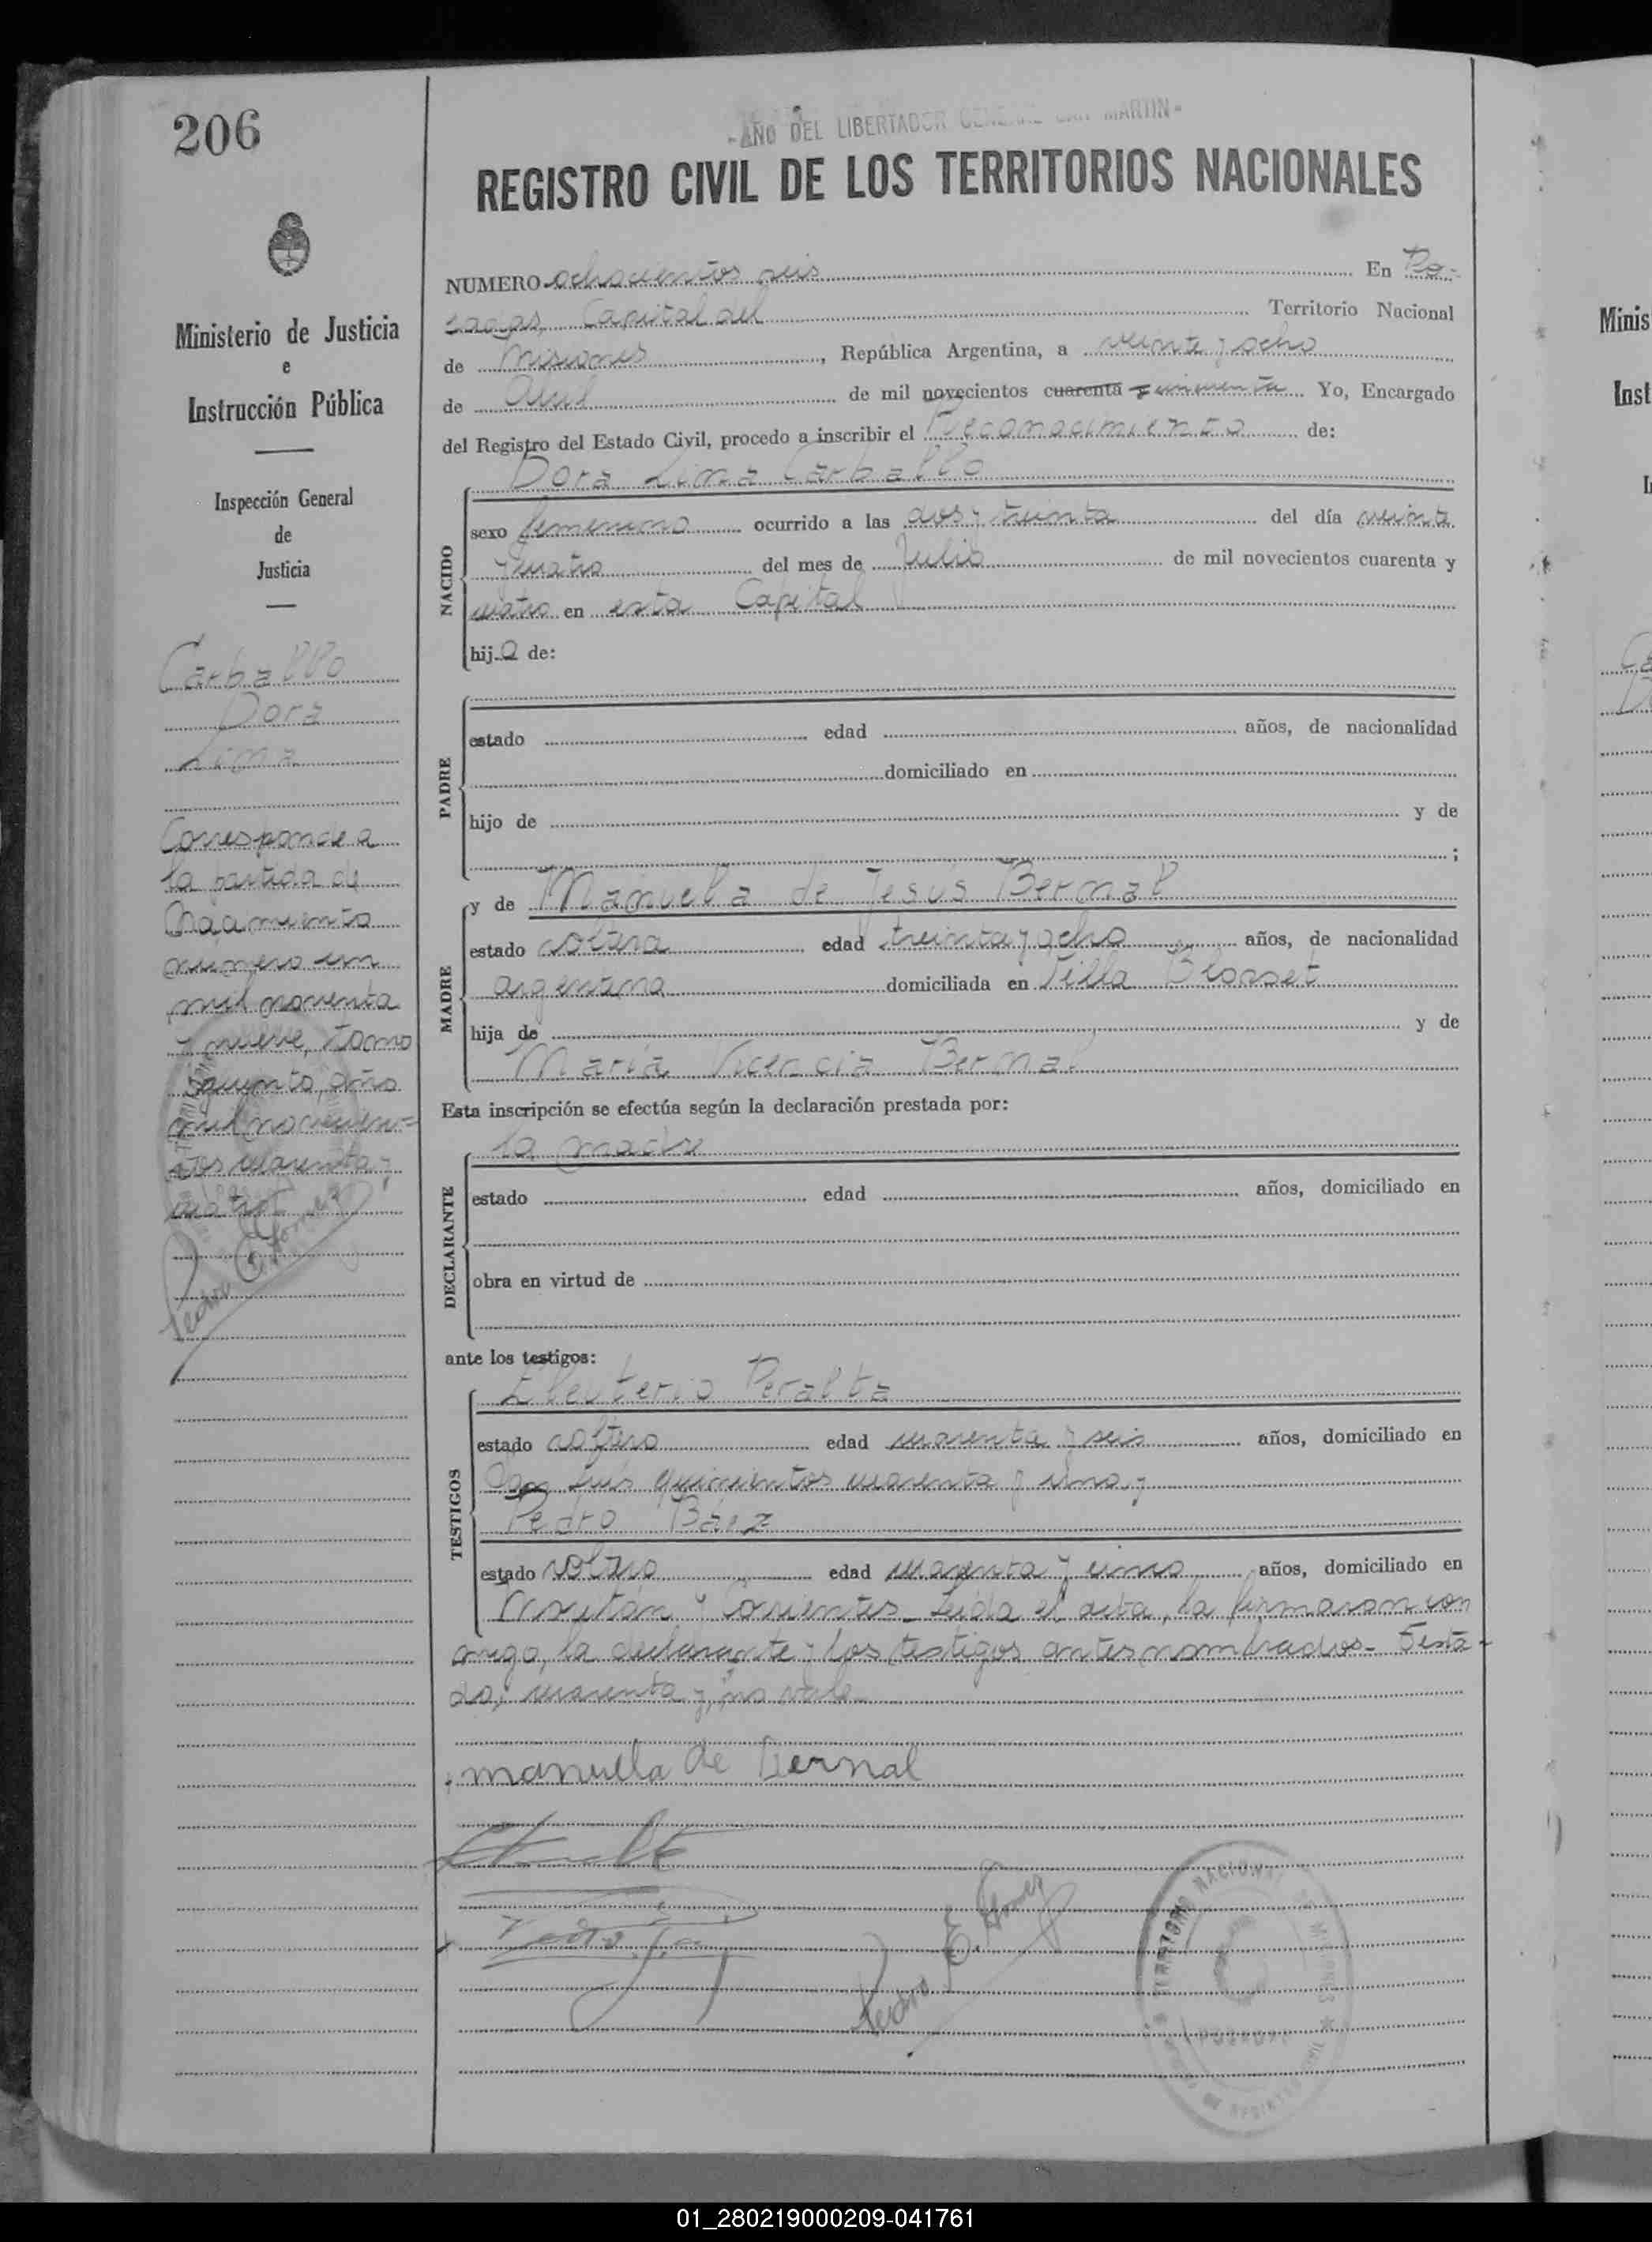 206
-AÑO DEL LIBERTADOR GENERAL SAN MARTIN-
REGISTRO CIVIL DE LOS TERRITORIOS NACIONALES
Ministerio de Justicia
e
Instrucción Pública
Inspección General
de
Justicia
Carballo
Dora
Lima
Corresponde a
la partida de
Nacimiento
número un
mil noventa
y nueve, tomo
año
mil novecien=
tos cuarenta y
cuatro
Pedro E. Gomez
NUMERO ochocientos seis En Po-
sadas, Capital del Territorio Nacional
de Misiones, República Argentina, a veinte y ocho
de Abril de mil novecientos cuarenta y cincuenta Yo, Encargado
del Registro del Estado Civil, procedo a inscribir el Reconocimiento de:
Dora Lima Carballo
NACIDO
sexo femenino ocurrido a las dos y treinta del día veinte
y cuatro del mes de Julio de mil novecientos cuarenta y
cuatro en esta Capital
hija de:
PADRE
estado edad años, de nacionalidad
domiciliado en
hijo de y de
;
MADRE
y de Manuela de Jesús Bernal
estado soltera edad treinta y ocho años, de nacionalidad
argentina domiciliada en Villa Blosset
hija de y de
María Vicencia Bernal
Esta inscripción se efectúa según la declaración prestada por:
DECLARANTE
la madre
estado edad años, domiciliado en
obra en virtud de
ante los testigos:
TESTIGOS
Eleuterio Peralta
estado soltero edad cuarenta y seis años, domiciliado en
San Luis quinientos cuarenta y uno, y
Pedro Báez
estado soltero edad cuarenta y cinco años, domiciliado en
y Corrientes- Leída el acta, la firmaron con
migo, la declarante y los testigos antes nombrados- Testa-
do, cuarenta y, no vale
manuela de Bernal
Pedro E. Gomez
TERRITORIO NACIONAL DE MISIONES
POSADAS
Minis
Inst
01_280219000209-041761